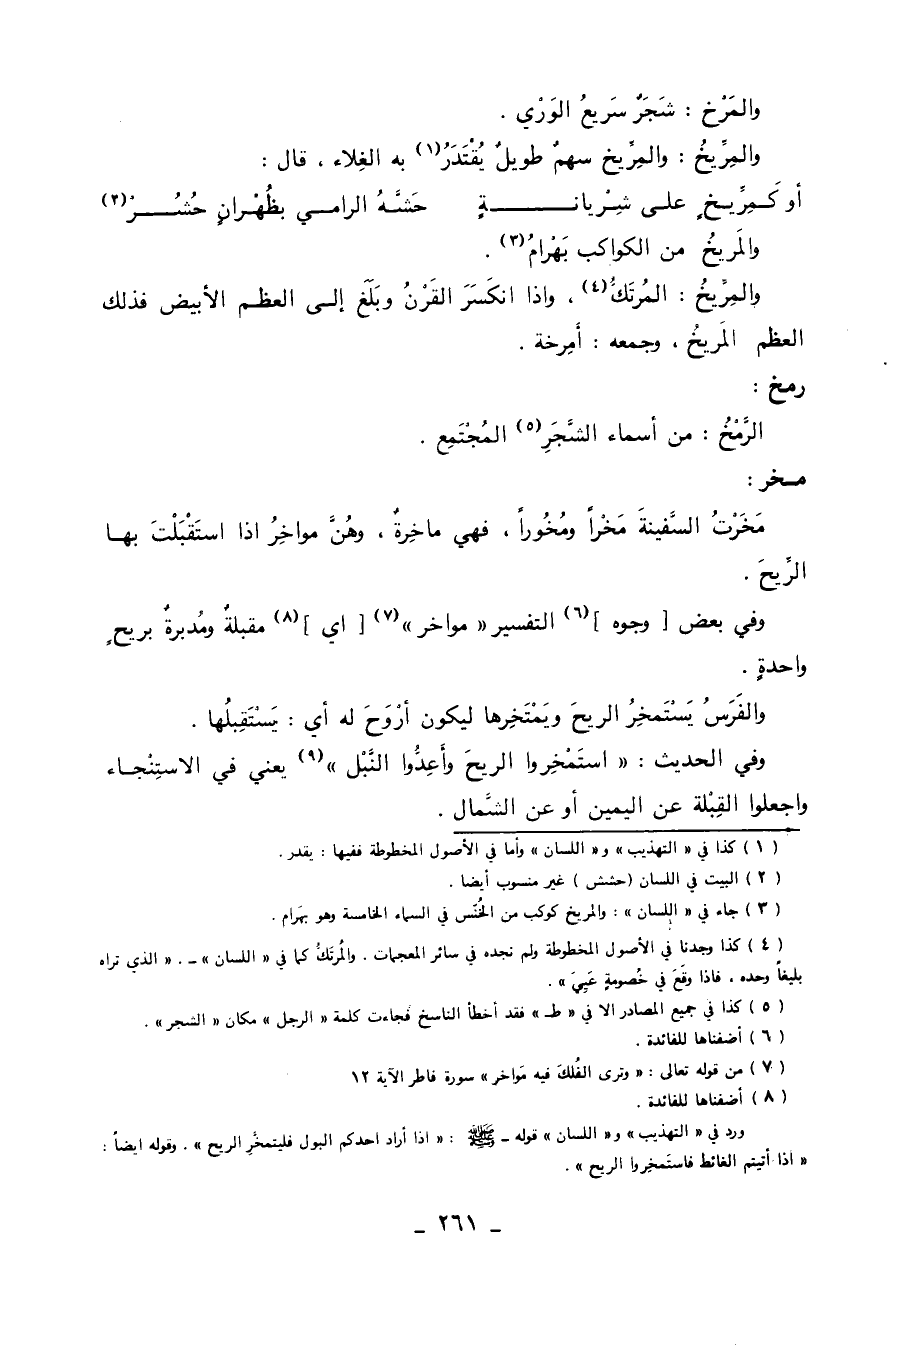 والمَرْخ : شَجَرٌ سَريعُ الوَرْي .
والمِرِّيخُ : والمِرِّيخ سهمٌ طويلٌ يُقْتَدَرُ(١) به الغِلاء ، قال :
أو كَمِرِّيخٍ على شِرْيانةٍ حَشَّهُ الرامي بظُهْرانٍ حُشُرْ(٢)
والمَريخُ من الكواكب بَهْرامُ(٣) .
والمِرِّيخُ : المُرتَكُ(٤) ، واذا انكَسَرَ القَرْنُ وبَلَغَ إلى العظم الأبيض فذلك
العظم المَريخُ ، وجمعه : أَمرِخة .
رمخ :
الرَّمْخُ : من أسماء الشَّجَرِ(٥) المُجْتَمِع .
مخر :
مَخَرْتُ السَّفينةَ مَخْراً ومُخُوراً ، فهي ماخِرةٌ ، وهُنَّ مواخِرُ اذا استَقْبَلْتَ بها
الرِّيحَ .
وفي بعض [ وجوه ](٦) التفسير « مواخر »(٧) [ اي ](٨) مقبلةٌ ومُدبرةٌ بريحٍ
واحدةٍ .
والفَرَسُ يَسْتَمخِرُ الريحَ ويَمْتَخِرها ليكون أرْوَحَ له أي : يَسْتَقبِلُها .
وفي الحديث : « استَمْخِروا الريحَ وأَعِدُّوا النَّبْل »(٩) يعني في الاستِنْجاء
واجعلوا القِبْلة عن اليمين أو عن الشَّمال .
( ١ ) كذا في « التهذيب » و« اللسان » وأما في الأصول المخطوطة ففيها : يقدر .
( ٢ ) البيت في اللسان (حشش ) غير منسوب أيضا .
( ٣ ) جاء في « اللسان » : والمريخ كوكب من الخُنّس في السماء الخامسة وهو بهَرام .
( ٤ ) كذا وجدنا في الأصول المخطوطة ولم نجده في سائر المعجمات . والمُرتَكُ كما في « اللسان » ــ . « الذي تراه
بليغاً وحده ، فاذا وقَعَ في خُصومةٍ عَيِيَ » .
( ٥ ) كذا في جميع المصادر الا في « ط‍ » فقد أخطأ الناسخ فجاءت كلمة « الرجل » مكان « الشجر » .
( ٦ ) أضفناها للفائدة .
( ٧ ) من قوله تعالى : « وترى الفُلكَ فيه مَواخر » سورة فاطر الآية ١٢
( ٨ ) أضفناها للفائدة .
ورد في « التهذيب » و« اللسان » قوله ــ ﷺ : « اذا أراد احدكم البول فليتمخَّرِ الريح » . وقوله ايضاً :
« اذا أتيتم الغائط فاستَمخِروا الريح » .
ــ ٢٦١ ــ